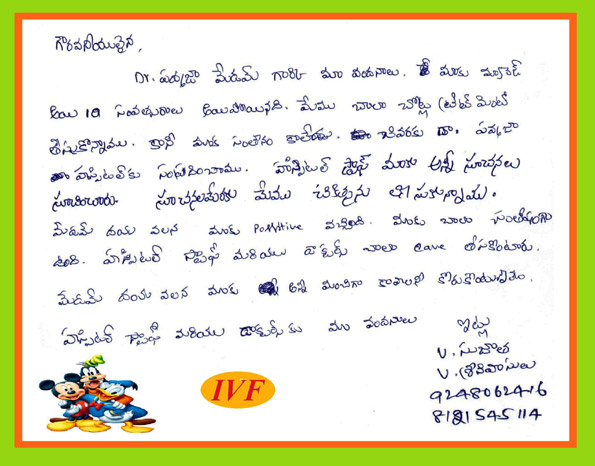 గౌరవనీయులైన,
Dr. పద్మజా మేడమ్ గారికి మా వందనాలు. మాకు మ్యారేజ్
అయి 10 సంవత్సరాలు అయిపోయినది. మేము చాలా చోట్ల ట్రీట్ మెంట్
తీసుకొన్నాము. కానీ మాకు సంతానం కాలేదు. చివరకు డా. పద్మజా
హాస్పిటల్ కు సంప్రదించాము. హాస్పిటల్ స్టాఫ్ మాకు అన్నీ సూచనలు
సూచించారు. సూచనలమేరకు మేము చికిత్సను తీసుకున్నాము.
మేడమ్ దయ వలన మాకు Possitive వచ్చింది. మాకు చాలా సంతోషంగా
ఉంది. హాస్పిటల్ స్టాఫ్ మరియు డాక్టర్స్ చాలా care తీసుకొంటారు.
మేడమ్ దయ వలన మాకు అన్నీ మంచిగా కావాలని కోరుకొంటున్నాం.
హాస్పిటల్ స్టాఫ్ మరియు డాక్టర్స్ కు మా వందనాలు
ఇట్లు
V. సుజాత
V. శ్రీనివాసులు
9248062416
8121545114
IVF